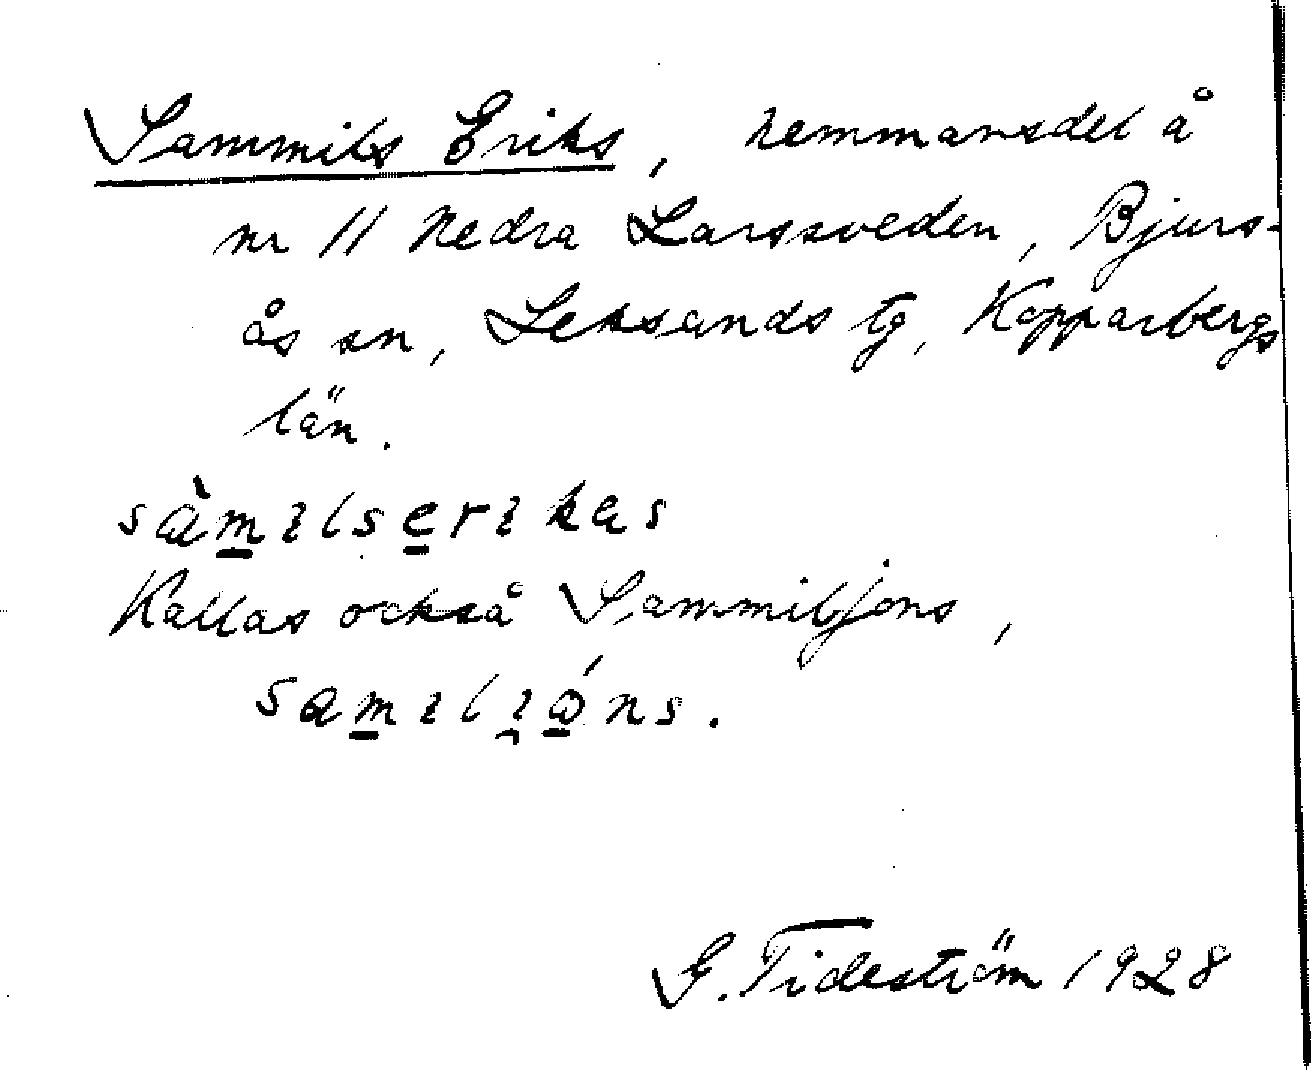 Sammils Eriks, hemmansdel å
nr 11 Nedra Larssveden, Bjurs-
ås sn, Leksands tg, Kopparbergs
län.
sàmılserıkas
Kallas också Sammiljons,
samılı̯óns.
G. Tideström 1928